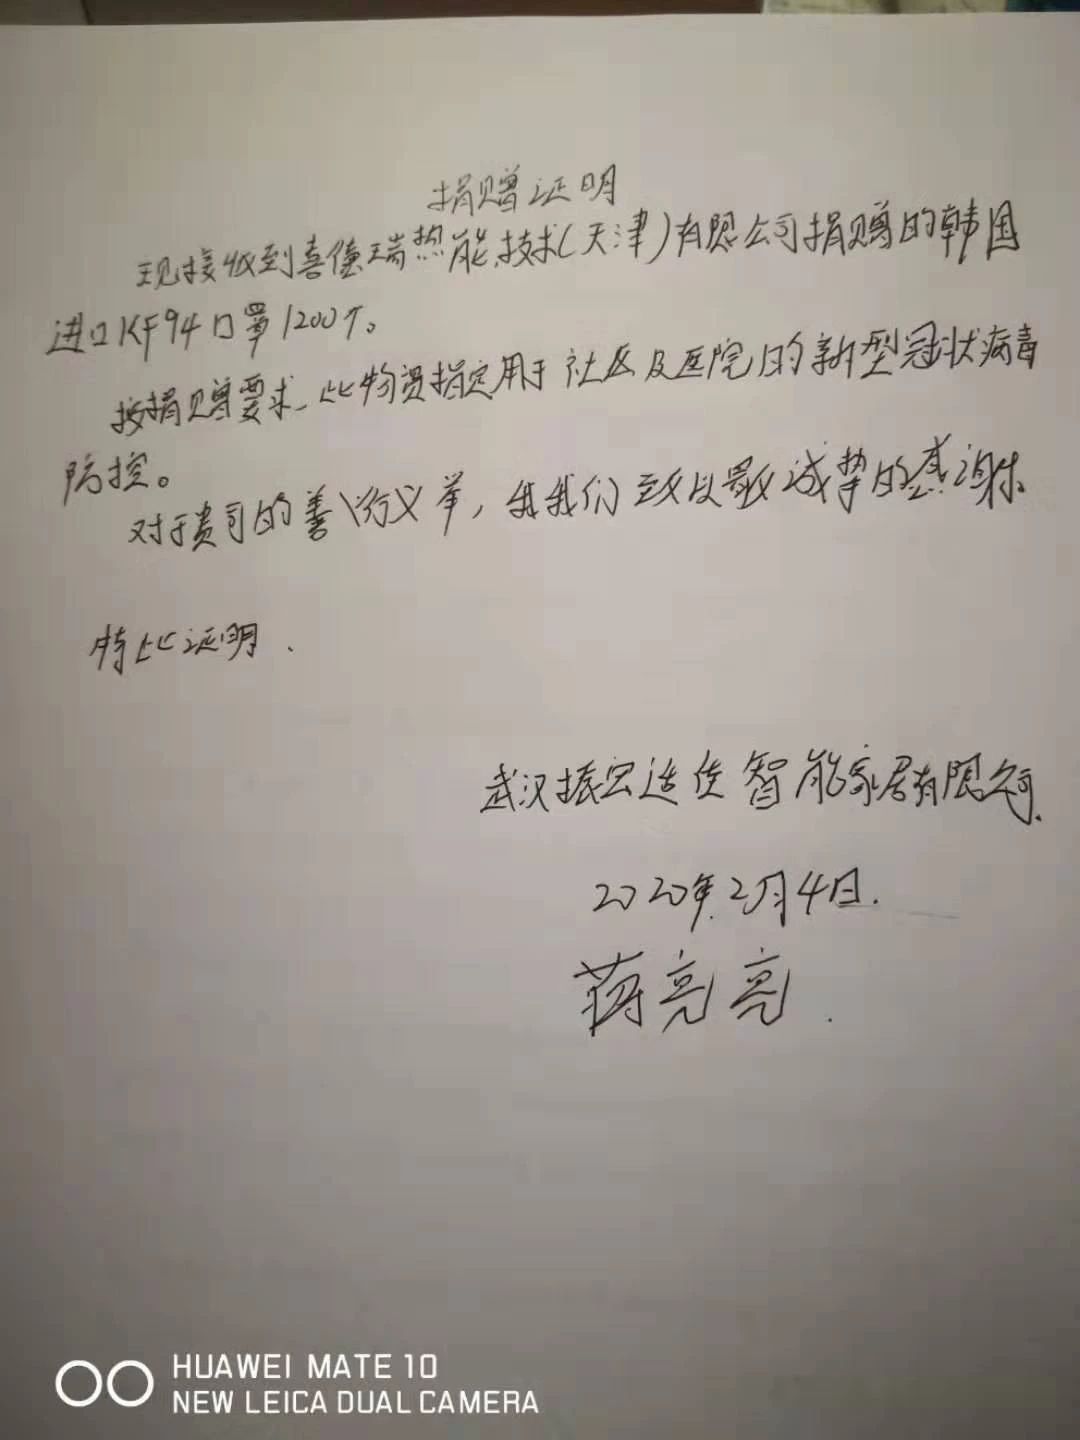 捐赠证明
现接收到喜德瑞热能技术(天津)有限公司捐赠的韩国
进口KF94口罩1200个。
按捐赠要求、此物资指定用于社区及医院的新型冠状病毒
防控。
对于贵司的善行义举,我们致以最诚挚的感谢。
特此证明.
武汉振宏造佳智能家居有限公司.
2020年2月4日.
蒋亮亮.
HUAWEI MATE 10
NEW LEICA DUAL CAMERA